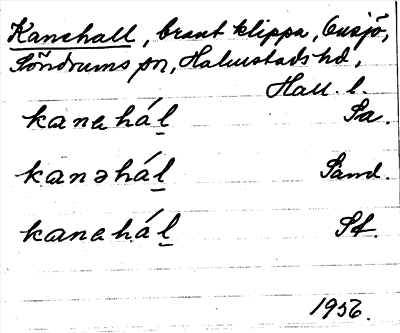 Kanehall, brant klippa, Gusjö,
Söndrums sn, Halmstads hd,
Hall. l.
kanəhál̲ Sa.
kanəhál̲ Sand.
kanəhál̲ St.
1956.